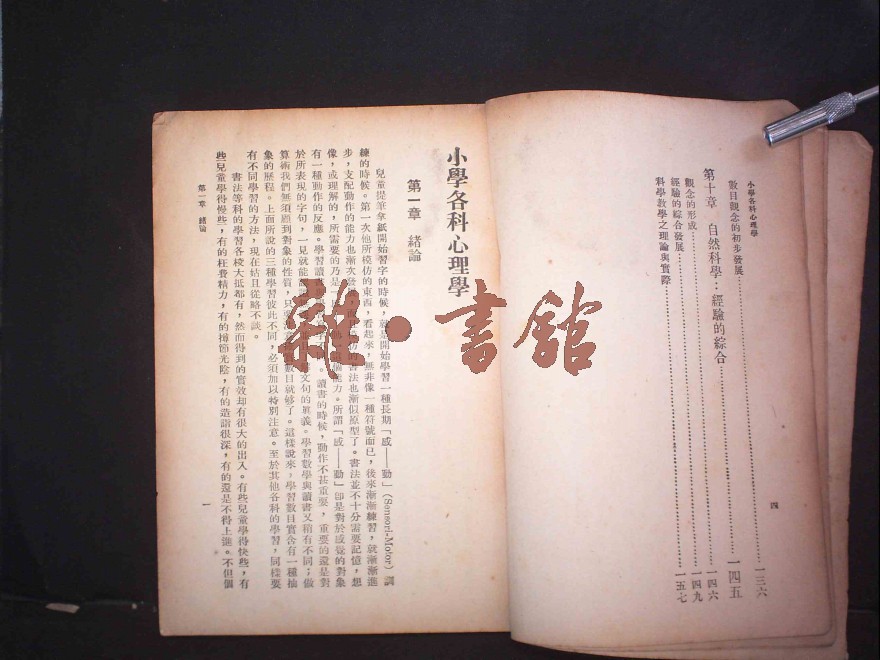 小學各科心理學
數目觀念的初步發展一三六
第十章 自然科學：經驗的綜合一四五
觀念的形成一四六
經驗的綜合發展一四九
科學教學之理論與實際一五七
四
小學各科心理學
第一章 緒論
兒童提筆拿紙開始習字的時候，就是開始學習一種長期「感——動」(Sensori-Motor)訓
練的時候。第一次他所模仿的東西，看起來，無非像一種符號而已，後來漸漸練習，就漸漸進
步，支配動作的能力也漸次發展，書法也漸似原型了。書法並不十分需要記憶，想
像，或理解的，所需要的乃是一種能力。所謂「感——動」卽是對於感覺的對象
有一種動作的反應。學習讀書讀書的時候，動作不甚重要，重要的還是對
於所表現的字句，一見就能文句的眞義。學習數學與讀書又稍有不同；做
算術我們無須顧到對象的性質，只數目就够了。這樣說來，學習數目實含有一種抽
象的歷程。上面所說的三種學習彼此不同，必須加以特別注意。至於其他各科的學習，同樣要
有不同學習的方法，現在姑且從略不談。
書法等科的學習各校大抵都有，然而得到的實效却有很大的出入。有些兒童學得快些，有
些兒童學得慢些，有的枉費精力，有的撙節光陰，有的造詣很深，有的還是不得上進。不但個
第一章 緒論
一
雜·書館